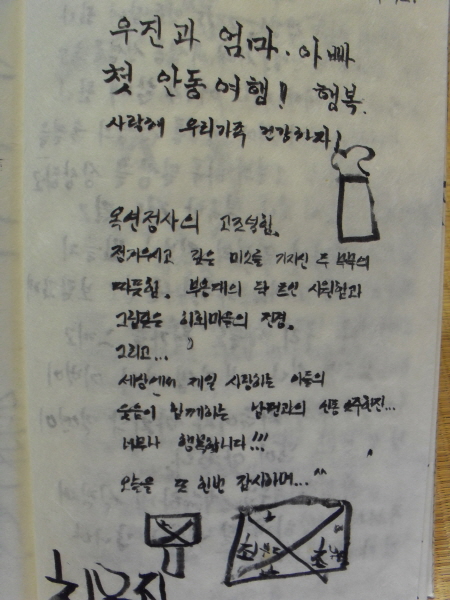 우진과 엄마. 아빠
첫 안동여행! 행복.
사랑해 우리가족 건강하자!
옥연정사의 고즈넉함.
깊은 미소를 가지신 두 분의
따뜻함. 부용대의 탁 트인 시원함과
그림같은 하회마을의 전경.
그리고...
세상에서 제일 사랑하는 아들의
웃음이 함께하는 남편과의
너무나 행복합니다!!!
오늘을 또 한번 감사하며...^^
최우진